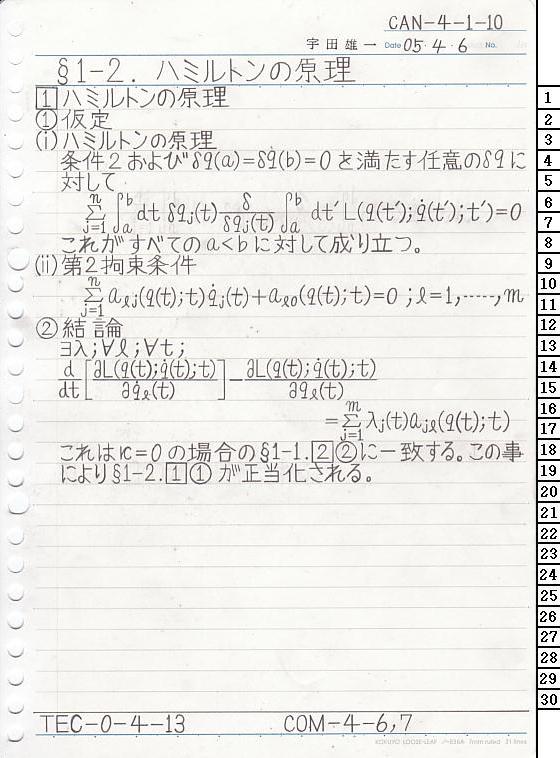 CAN-4-1-10
宇田雄一 Date 05・4・6 No.
§1-2. ハミルトンの原理
1 ハミルトンの原理
① 仮定
(i) ハミルトンの原理
条件2 および δq(a)=δq(b)=0 を満たす任意の δq に
対して
∑_{j=1}^{n} ∫_a^b dt δq_j(t) δ/δq_j(t) ∫_a^b dt′ L(q(t′);q̇(t′);t′)=0
これがすべての a<b に対して成り立つ。
(ii) 第2拘束条件
∑_{j=1}^{n} a_{ℓj}(q(t);t)q̇_j(t)+a_{ℓ0}(q(t);t)=0 ;ℓ=1,-----,m
② 結論
∃λ;∀ℓ;∀t;
d/dt[∂L(q(t);q̇(t);t)/∂q̇_ℓ(t)]-∂L(q(t);q̇(t);t)/∂q_ℓ(t)
=∑_{j=1}^{m} λ_j(t)a_{jℓ}(q(t);t)
これは κ=0 の場合の §1-1. 2 ② に一致する。この事
により §1-2. 1 ① が正当化される。
TEC-0-4-13 COM-4-6,7
KOKUYO LOOSE-LEAF ノ-836A 7mm ruled 31 lines
1
2
3
4
5
6
7
8
9
10
11
12
13
14
15
16
17
18
19
20
21
22
23
24
25
26
27
28
29
30